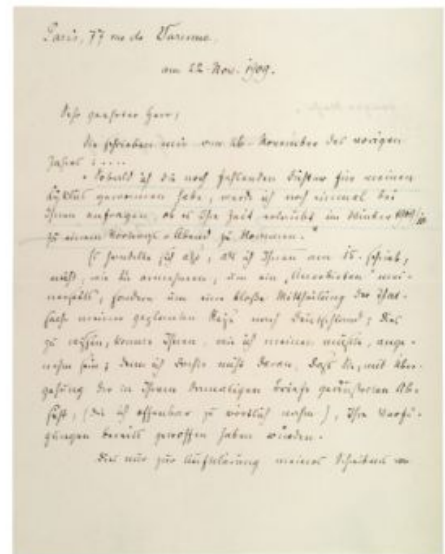 Paris, 77 rue de Varenne
am 22. Nov. 1909.
Sehr geehrter Herr,
Sie schrieben mir am 26. November des vorigen
Jahres: ....
"Sobald ich die noch fehlenden Dichter für meinen
Cyklus gewonnen habe, werde ich noch einmal bei
Ihnen anfragen, ob es Ihre Zeit erlaubt im Winter 1909/10
zu einem Vortrags-Abend zu kommen."
Es handelte sich also, als ich Ihnen am 15. schrieb,
nicht, wie Sie annehmen, um ein „Anerbieten" mei-
nerseits, sondern um eine bloße Mittheilung der That-
sache meiner geplanten Reise nach Deutschland; dies
zu wissen, konnte Ihnen, wie ich meinen mußte, ange-
nehm sein; denn ich dachte nicht daran, daß Sie, mit Über-
gehung der in Ihrem damaligen Briefe geäußerten Ab-
sicht, (die ich offenbar zu wörtlich nahm), Ihre Verfü-
gungen bereits getroffen haben würden.
Dies nur zur Aufklärung meines Schreibens